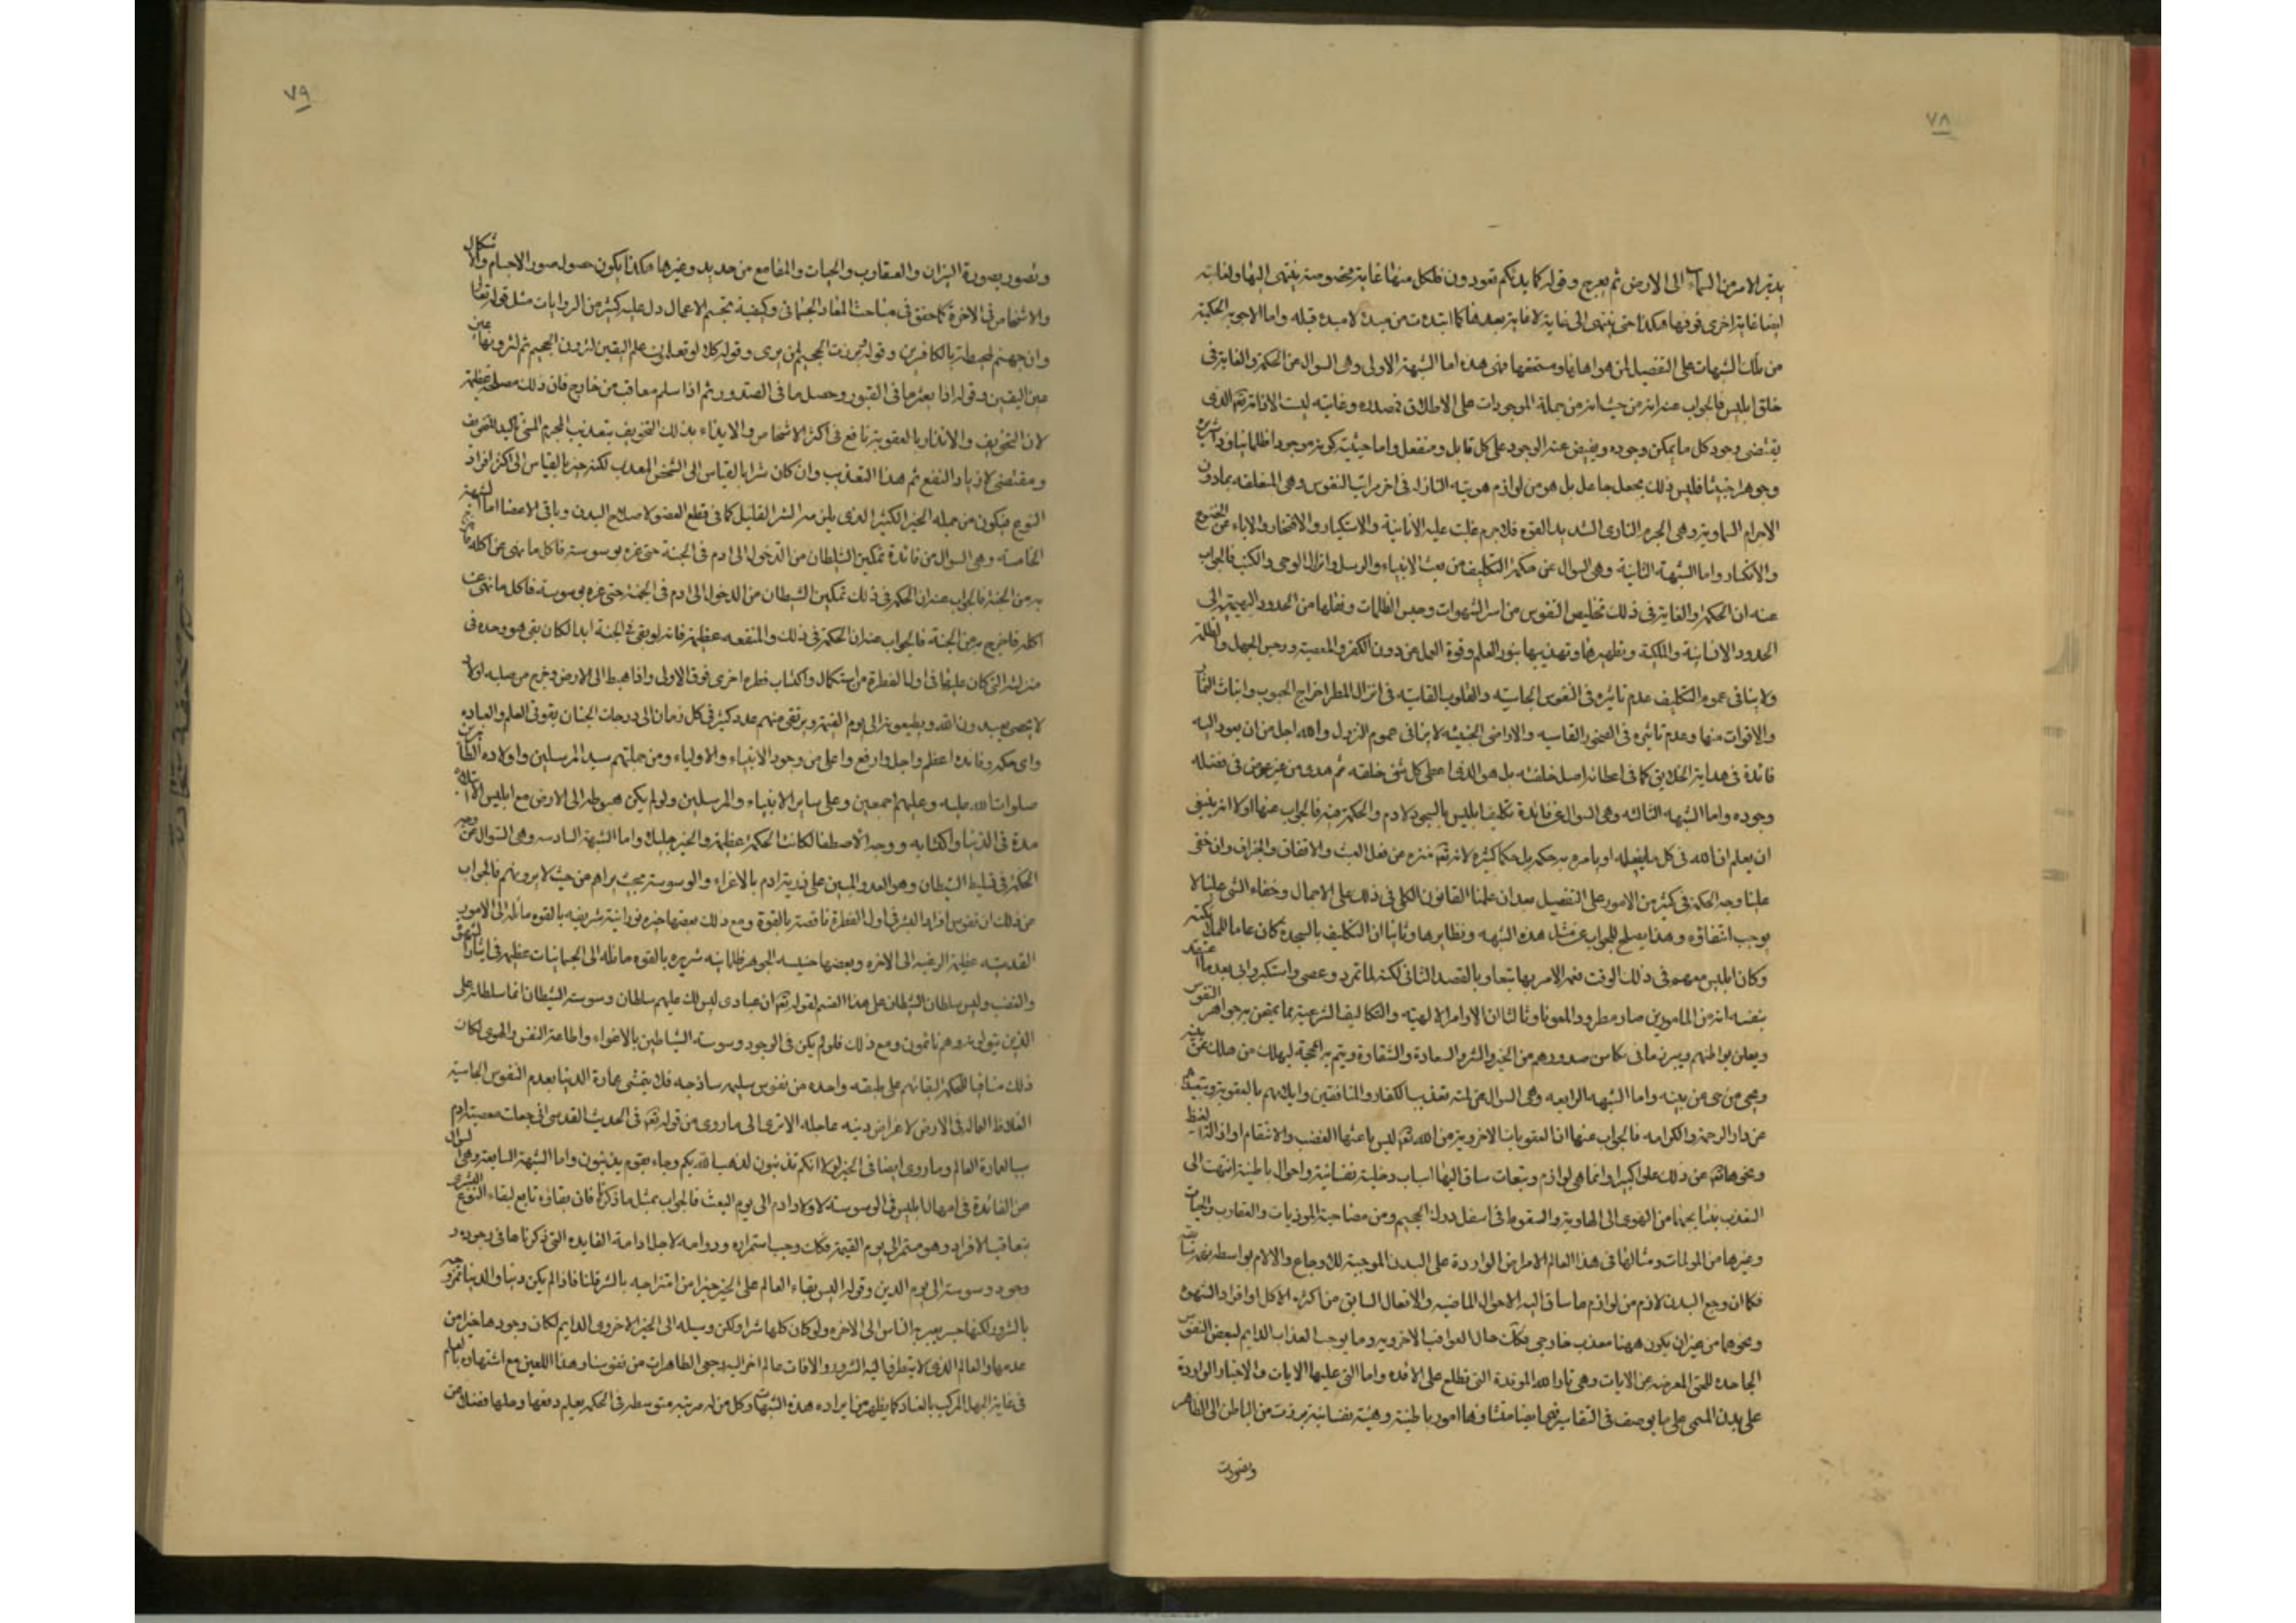 ٧٨
يدبر الامر من السماء الى الارض ثم يعرج وقوله كما بدئكم تعودون فلكل منها غاية مخصوصة ينتهى اليها ولغايته
ايضا غاية اخرى فوقها هكذا حتى ينتهى الى غاية لا غاية بعدها كما ابتدءت من مبدء لا مبدء قبله واما الاجوبة الحكمية
من تلك الشبهات على التفصيل لمن هو اهلها ومستحقها فهى هذه اما الشبهة الاولى وهى السوال عن الحكمة والغاية فى
خلق ابليس فالجواب عنه انه من حيث انه من جملة الموجودات على الاطلاق فصدره وغايته ليست الا ذاته تعه الذى
يقتضى وجود كل ما يمكن وجوده ويفيض عنه الوجود على كل قابل ومنفعل واما حيثية كونه موجودا ظلمانيا وذا شريرة
وجوهرا خبيثا فليس ذلك بجعل جاعل بل هو من لوازم هويته النازلة فى اخر مراتب النفوس وهى المتعلقه بمادون
الاجرام السماوية وهى الجرم النارى الشديد القوه فلاجرم غلبت عليه الانانية والاستكبار والافتخار والاباء عن الخضوع
والانكسار واما الشبهة الثانية وهى السوال عن حكمة التكليف من بعث الانبياء والرسل وانزال الوحى والكتب فالجواب
عنه ان الحكمة والغاية فى ذلك تخليص النفوس من اسر الشهوات وحبس الظلمات ونقلها من الحدود البهيمية الى
الحدود الانسانية والملكية وتطهيرها وتهذيبها بنور العلم وقوة العمل عن دون الكفر والمعصية ورجس الجهل والظلمة
ولا ينافى عموم التكليف عدم تاثيره فى النفوس الجاسيه والقلوب القاسيه فى انزال المطر اخراج الحبوب وانبات الثمار
والاقوات منها وعدم تاثيره فى الصخور القاسيه والاراضى الخبيثه لا ينافى عموم النزول والله اجل من ان يعود اليه
فائدة فى هداية الخلايق كما فى اعطائه اصل خلقته بل هو الذى اعطى كل شئ خلقته ثم هدى من غير عوض فى فضله
وجوده واما الشبهه الثالثه وهى السوال عن فائدة تكليف ابليس بالسجود لادم والحكمة فيه فالجواب عنها اولا انه ينبغى
ان يعلم ان الله فى كل ما يفعله او يامره به حكمة بل حكما كثيره لانه تعه منزه من فعل العبث والاتفاق والجزاف وان خفى
علينا وجه الحكمة فى كثير من الامور على التفصيل بعد ان علمنا القانون الكلى فى ذلك على الاجمال وخفاء الشى علينا لا
يوجب انتفاؤه وهذا يصلح للجواب عن مثل هذه الشبهه ونظايرها وثانيا ان التكليف بالسجدة كان عاما للملائكته
وكان ابليس معهم فى ذلك الوقت فعمه الامر بها تبعا وبالقصد الثانى لكنه لما تمرد وعصى واستكبر وابى بعد ما اعتقد
بنفسه انه من المامورين صار مطرودا ملعونا وثالثا ان الاوامر الالهيه والتكاليف الشرعية مما يمتحن به جواهر النفوس
ويعلن بواطنهم ويبرز ما فى مكامن صدورهم من الخير والشر والسعادة والشقاوة ويتم به الحجة ليهلك من هلك عن بينه
ويحيى من حى عن بينه واما الشبهه الرابعه وهى السوال عن لمية تعذيب الكفار والمنافقين وايلامهم بالعقوبة وتبعيدهم
عن دار الرحمة والكرامه فالجواب عنها ان العقوبات الاخروية من الله تعه ليس باعثها الغضب والانتقام او ازالة الغيظ
ونحوها تعه عن ذلك علوا كبيرا وانما هى لوازم وتبعات ساق اليها اسباب داخلية نفسانية واحوال باطنية انتهت الى
التعذيب بنتايجها من الهوى الى الهاوية والسقوط فى اسفل درك الجحيم ومن مصاحبة الموذيات والعقارب والحيات
وغيرها من المولمات ومثالها فى هذا العالم الامراض الواردة على البدن الموجبة للاوجاع والالام بواسطه
فكما ان وجع البدن لازم من لوازم ما ساق اليه الاحوال الماضيه والافعال السابق من اكثره الاكل او افراد الشهوه
ونحوهما من غير ان يكون ههنا معذب خارجى فكذلك حال العواقب الاخرويه وما يوجب العذاب الدايم لبعض النفوس
الجاحده للحق المعرضه عن الايات وهى نار الله الموقدة التى تطلع على الافئده واما التى عليها الايات والاخبار الواردة
على بدن المسئ على ما يوصف فى التفاسير فهى ايضا منشاوها امور باطنية وهيئة نفسانية برزت من الباطن الى الظاهر
وتصورت
٧٩
وتصور بصورة النيران والعقارب والحيات والمقامع من حديد وغيرها هكذا يكون حصول صور الاجسام والاشكال
والاشخاص فى الاخرة كما حقق فى مباحث المعاد الجسمانى وكيفية تجسم الاعمال ودل عليه كثير من الروايات مثل قوله تعالى
وان جهنم لمحيطة بالكافرين وقوله وبرزت الجحيم لمن يرى وقوله كلا لو تعلمون علم اليقين لترون الجحيم ثم لترونها عين
عين اليقين وقوله اذا بعثر ما فى القبور وحصل ما فى الصدور ثم اذا سلم معاقب من خارج فان ذلك مصلحة عظيمة
لان التخويف والانذار بالعقوبة نافع فى اكثر الاشخاص والايفاء بذلك التخويف بتعذيب المجرم المسئ تاكيد للتخويف
ومقتضى لازدياد النفع ثم هذا التعذيب وان كان شرا بالقياس الى الشخص المعذب لكنه خير بالقياس الى اكثر افراد
النوع فيكون من جمله الخير الكثير الذى يلزمه الشر القليل كما فى قطع العضو لاصلاح البدن وباقى الاعضا اما الشبهة
الخامسة وهى السوال من فائدة تمكين الشيطان من الدخول الى ادم فى الجنة حتى غره بوسوسته فاكل ما نهى عن اكله فاخرج
به من الجنة فالجواب عنه ان الحكمة فى ذلك تمكين الشيطان من الدخول الى ادم فى الجنة حتى غره بوسوسته فاكل ما نهى عن
اكله فاخرج به من الجنة فالجواب عنه ان الحكمة فى ذلك والمنفعه عظيمة فانه لو بقى فى الجنة ابدا لكان بقى هو وحده فى
منزلته التى كان عليها فى اول الفطرة من غير استكمال واكتساب فطرة اخرى فوق الاولى واذا هبط الى الارض وخرج من صلبه اولاد
لا يحصى يعبدون الله ويطيعونه الى يوم القيمة ويرتقى منهم عدد كثير فى كل زمان الى درجات الجنان بقوتى العلم والعباده
واى حكمه وفائده اعظم واجل وارفع واعلى من وجود الانبياء والاولياء ومن جملتهم سيد المرسلين واولاده الطاهرين
صلوات الله عليه وعليهم اجمعين وعلى ساير الانبياء والمرسلين ولو لم يكن هبوطه الى الارض مع ابليس الا ابتلاؤه
مدة فى الدنيا واكتسابه درجه الاصطفا لكانت الحكمة عظيمة والخير جليلا واما الشبهة السادسه وهى السوال عن وجه
الحكمة فى تسليط الشيطان وهو العدو المبين على ذرية ادم بالاغواء والوسوسة بحيث يراهم من حيث لا يرونهم فالجواب
من ذلك ان نفوس افراد البشر فى اول الفطرة ناقصة بالقوة ومع ذلك بعضها خيره نورانية شريفه بالقوه مائله الى الامور
القدسيه عظيمة الرغبه الى الاخره وبعضها خسيسه الجوهر ظلمانيه شريره بالقوه مائله الى الجسمانيات عظيمة فى ايثار الشهوة
والغضب وليس سلطان الشيطان على هذا القسم لقوله تعه ان عبادى ليس لك عليهم سلطان وسوسة الشيطان انما سلطانه على
الذين يتولونه وهم نائمون ومع ذلك فلو لم يكن فى الوجود وسوسة الشياطين بالاغواء واطاعة النفس والهوى لكان
ذلك منافيا للحكمة لبقائهم على طبقه واحده من نفوس سليمه ساذجه فلا يتمشى عمارة الدنيا بعدم النفوس الجاسية
الغلاظ العماله فى الارض لاغراض دنيه عاجله الا ترى الى ما روى من قوله تعه فى الحديث القدسى انى جعلت معصية ادم
سببا لعمارة العالم وما روى ايضا فى الخبر لولا انكم تذنبون لذهب الله بكم وجاء بقوم يذنبون واما الشبهة السابعة وهى السوال
عن الفائدة فى امهال ابليس فى الوسوسة لاولاد ادم الى يوم البعث فالجواب بمثل ما ذكرنا فان بقاؤه تابع لبقاء النوع البشرى
بتعاقب الافراد وهو مستمر الى يوم القيمة فكذلك وجب استمراره ودوامه لاجل ادامة الفايده التى ذكرناها فى وجوده و
وجود وسوسته الى يوم الدين وقوله اليس بقاء العالم على الخير خيرا من امتزاجه بالشر قلنا فاذا لم يكن دنيا والدنيا ممزوجه
بالشرور لكنها جسر يعبر به الناس الى الاخره ولو كان كلها شرا ولكن وسيله الى الخير الاخروى الدايم لكان وجودها خيرا من
عدمها والعالم الذى لا يتطرق اليه الشرور والافات عالم اخر اليه رجعى الطاهرات من نفوسنا وهذا اللعين مع اشتهاره بالعلم
فى غاية الجهل المركب بالعناد كما يظهر من ايراده هذه الشبهات وكل من له مرتبه متوسطه فى الحكمه يعلم دفعها وحلها فضلا عن